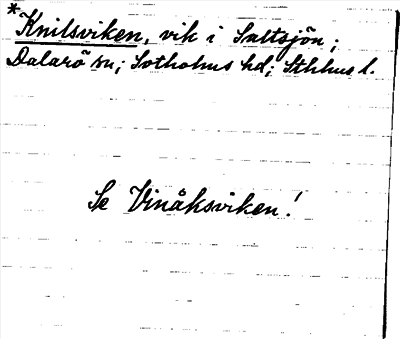 *Knilsviken, vik i Saltsjön;
Dalarö sn; Sotholms hd; Sthlms l.
Se Vinåksviken!